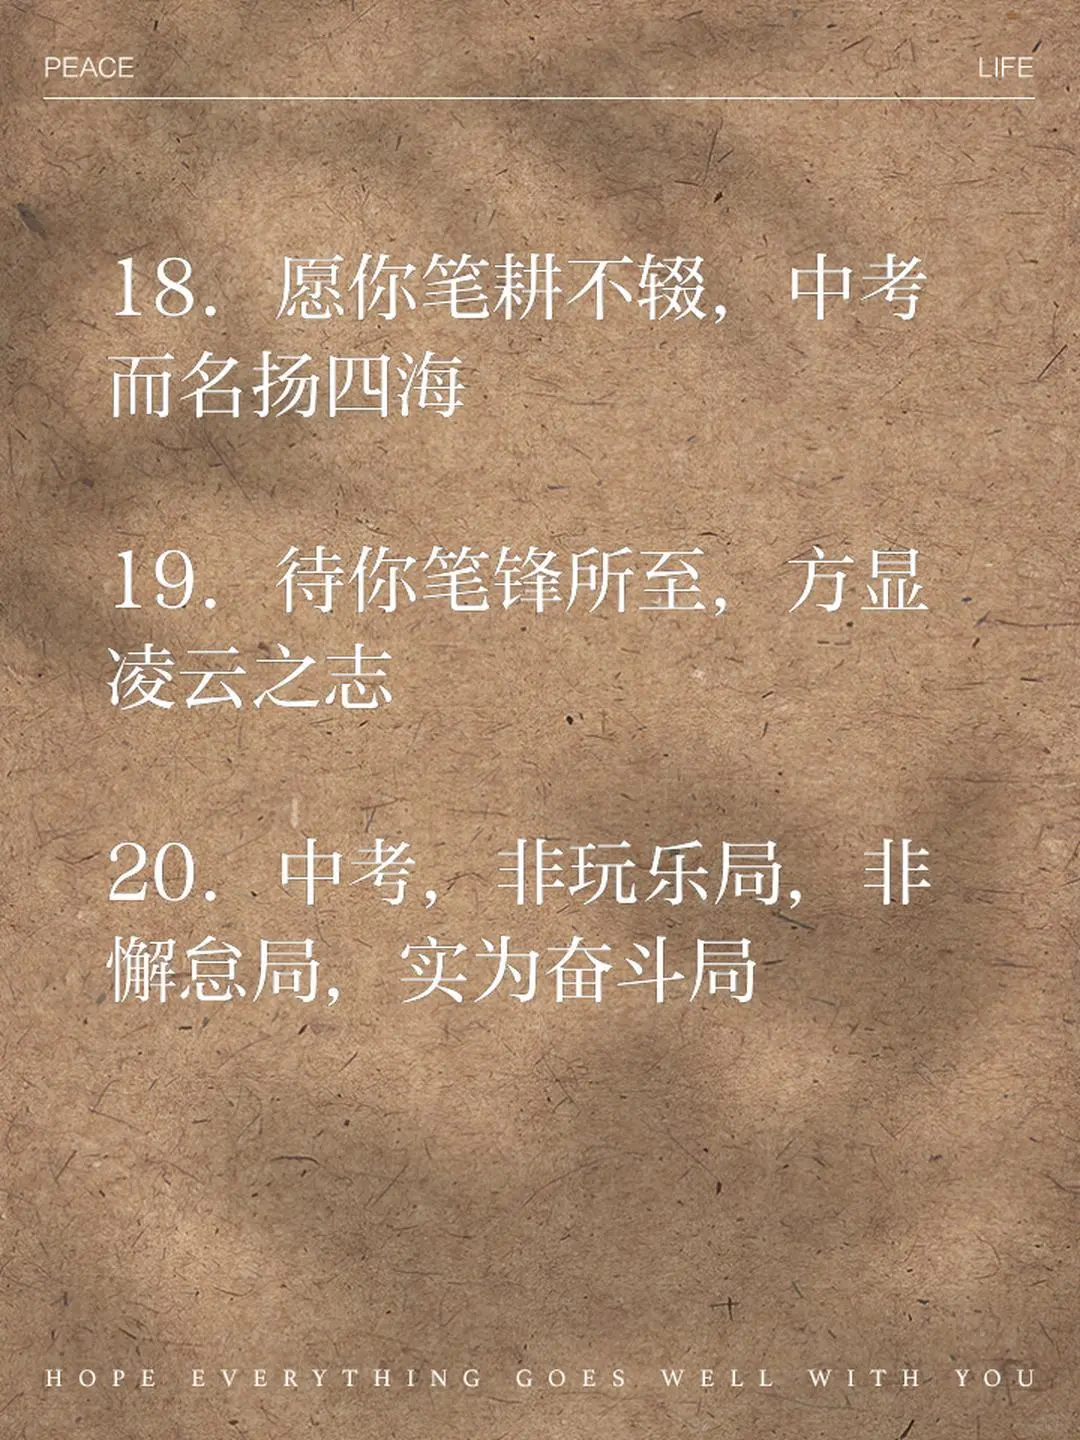 PEACE LIFE
18. 愿你笔耕不辍，中考
而名扬四海
19. 待你笔锋所至，方显
凌云之志
20. 中考，非玩乐局，非
懈怠局，实为奋斗局
HOPE EVERYTHING GOES WELL WITH YOU